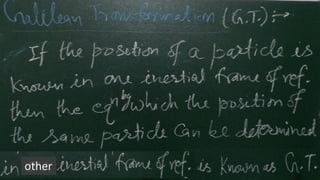 Galilean Transformation (G.T.) :→
If the position of a particle is
known in one inertial frame of ref.
then the eqn by which the position of
the same particle can be determined
in other inertial frame of ref. is known as G.T.